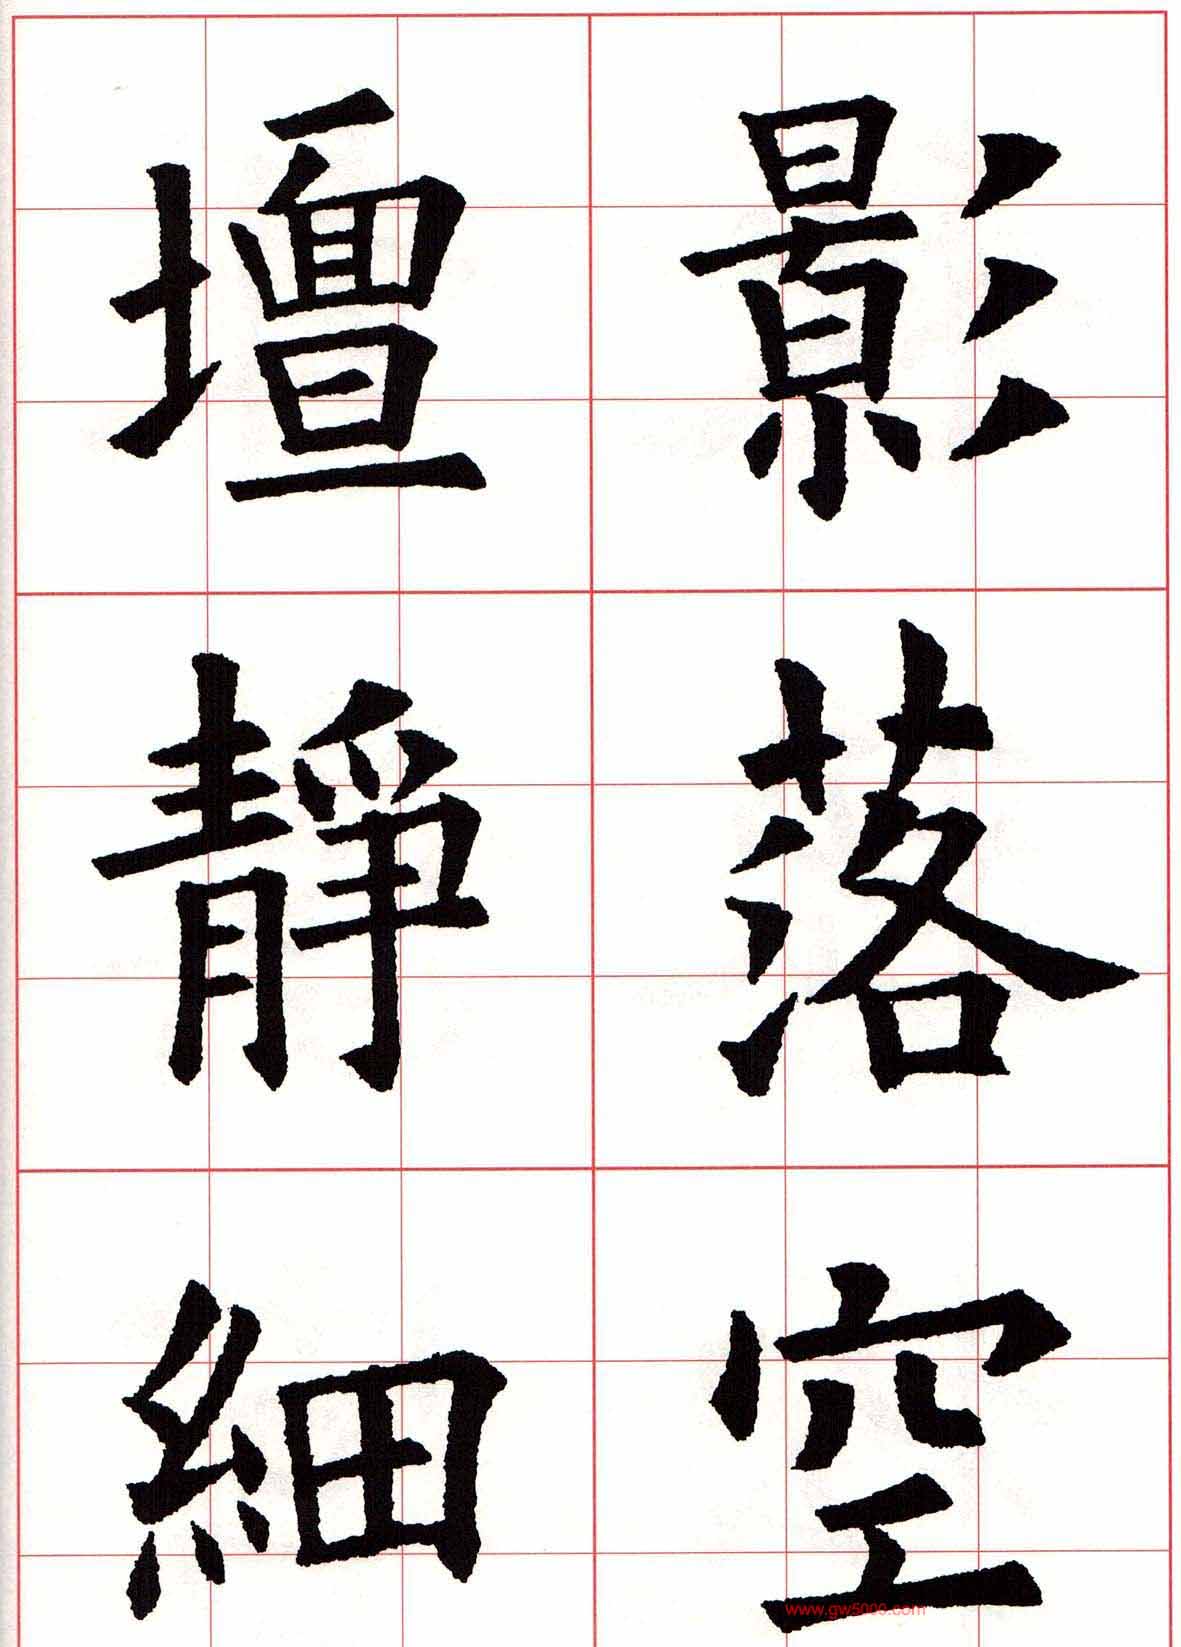 影落空
壇靜細
www.gw5000.com